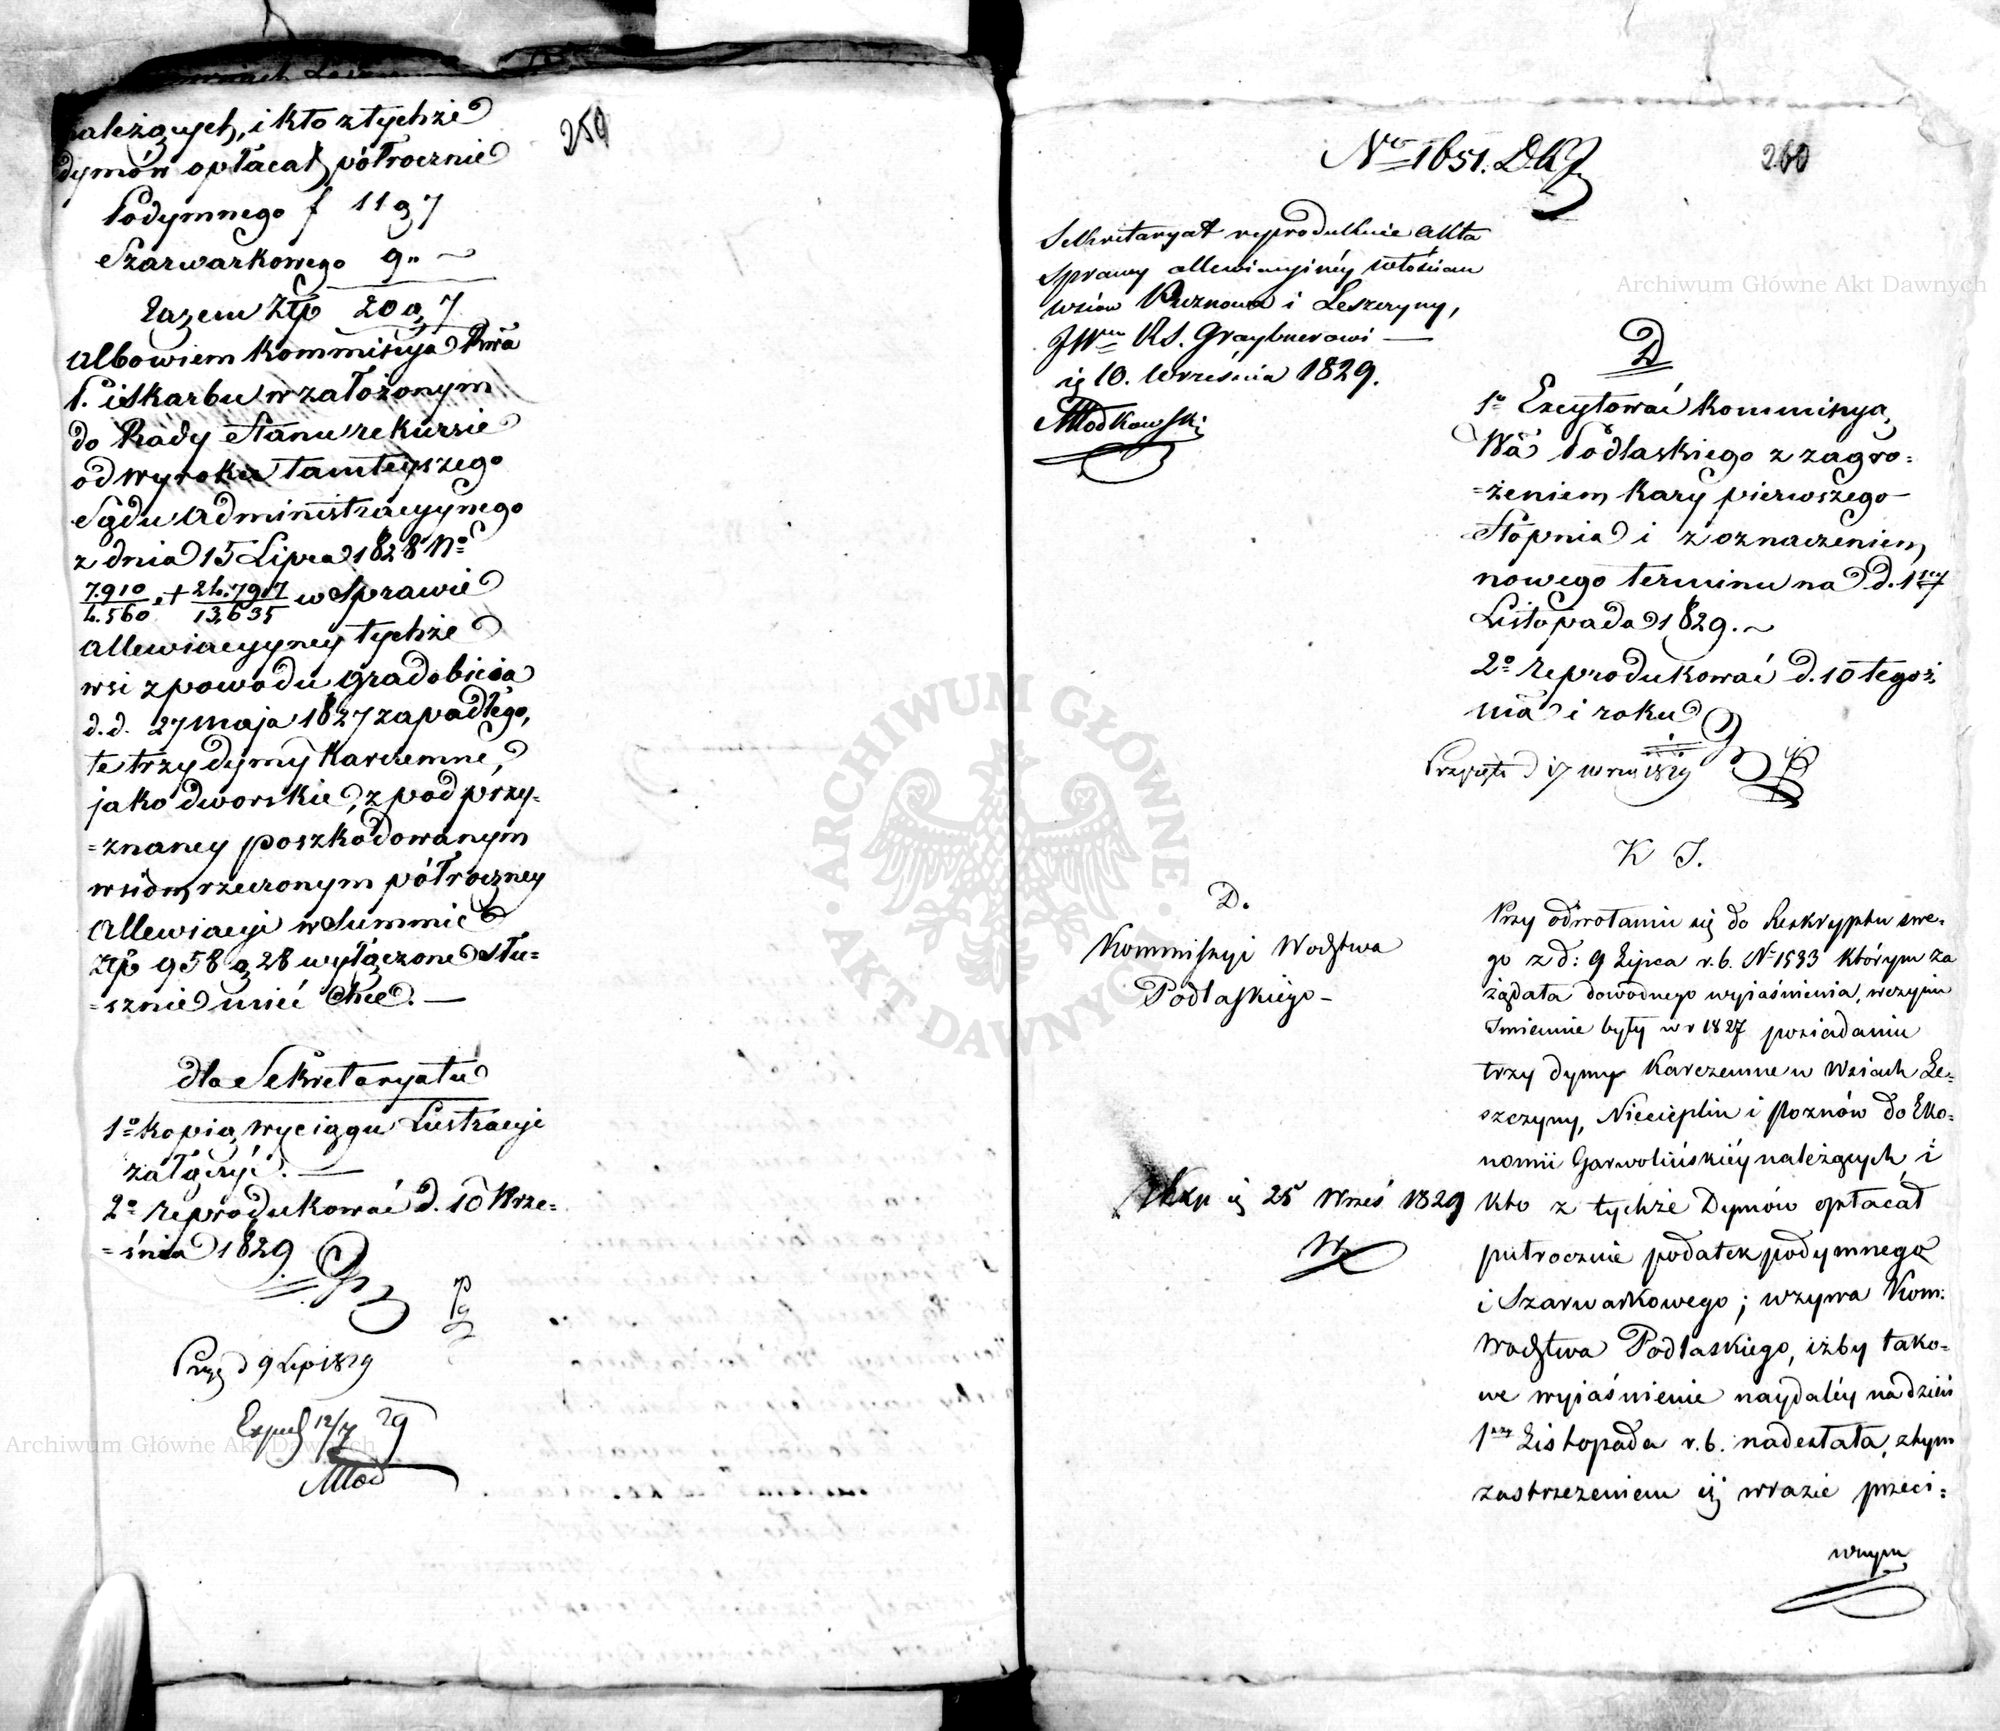 należących, i kto z tychże
dymów opłacał półrocznie
259
Podymnego f 11 g 7
Szarwarkowego 9 „ ~
Razem Złp 20 g 7
albowiem Kommissya Rwa
P. i Skarbu w założonym
do Rady Stanu rekursie
od wyroku tamteyszego
Sądu Administracyynego
z dnia 15 Lipca 1828 No
7.910/4.560 et 24.797/13.635 w Sprawie
allewiacyyney tychże
wsi z powodu gradobicia
d. d. 27 Maja 1827 zapadłego,
te trzy dymy Karczemne,
jako dworskie, z pod przy-
=znaney poszkodowanym
wsiom rzeczonym półroczney
allewiacyi w Summie
Złp 958 g 28 wyłączone słu=
=sznie mieć chce. —
dla Sekretaryatu
1o kopią wyciągu Lustracyi
załączyć. —
2o reprodukować d. 10 Wrze=
=śnia 1829
Przy d 9 Lip 1829
Exped 12/7 29
Młod
No 1651. DKJ
260
Sekretaryat reprodukuie akta
Sprawy allewiacyinéy włościan
wsiow Puznowa i Leszczyny,
JWmu RS. Graybnerowi —
ią 10. Września 1829.
Młodkowski
D
1o Excytować Kommissyą
Wa Podlaskiego z zagro=
=żeniem kary pierwszego
Stopnia i z oznaczeniem
nowego terminu na d. 1szy
Listopada 1829. ~
2o reprodukować d. 10 tegoż
mca i roku
Przyięte d 17 wrz 1829
K J.
D.
Kommissyi Wodztwa
Podlaskiego –
Exp ią 25 Wrześ 1829
Przy odwołaniu się do Reskryptu swe-
go z d: 9 Lipca r. b. No 1533 którym za
żądała dowodnego wyiaśnienia, w czyim
Imiennie były w r 1827 posiadaniu
trzy dymy Karczemne w Wsiach Le=
szczyny, Niecieplin i Poznów do Eko=
nomii Garwolińskiéy należących i
kto z tychże Dymów opłacał
pułrocznie podatek podymnego
i Szarwarkowego; wzywa Kom:
Wodztwa Podlaskiego, iżby tako=
we wyiaśnienie naydaléy na dzień
1szy Listopada r. b. nadesłała, z tym
zastrzeżeniem iż w razie przeci=
wnym
Archiwum Główne Akt Dawnych
Archiwum Główne Akt Dawnych
ARCHIWUM GŁÓWNE
AKT DAWNYCH